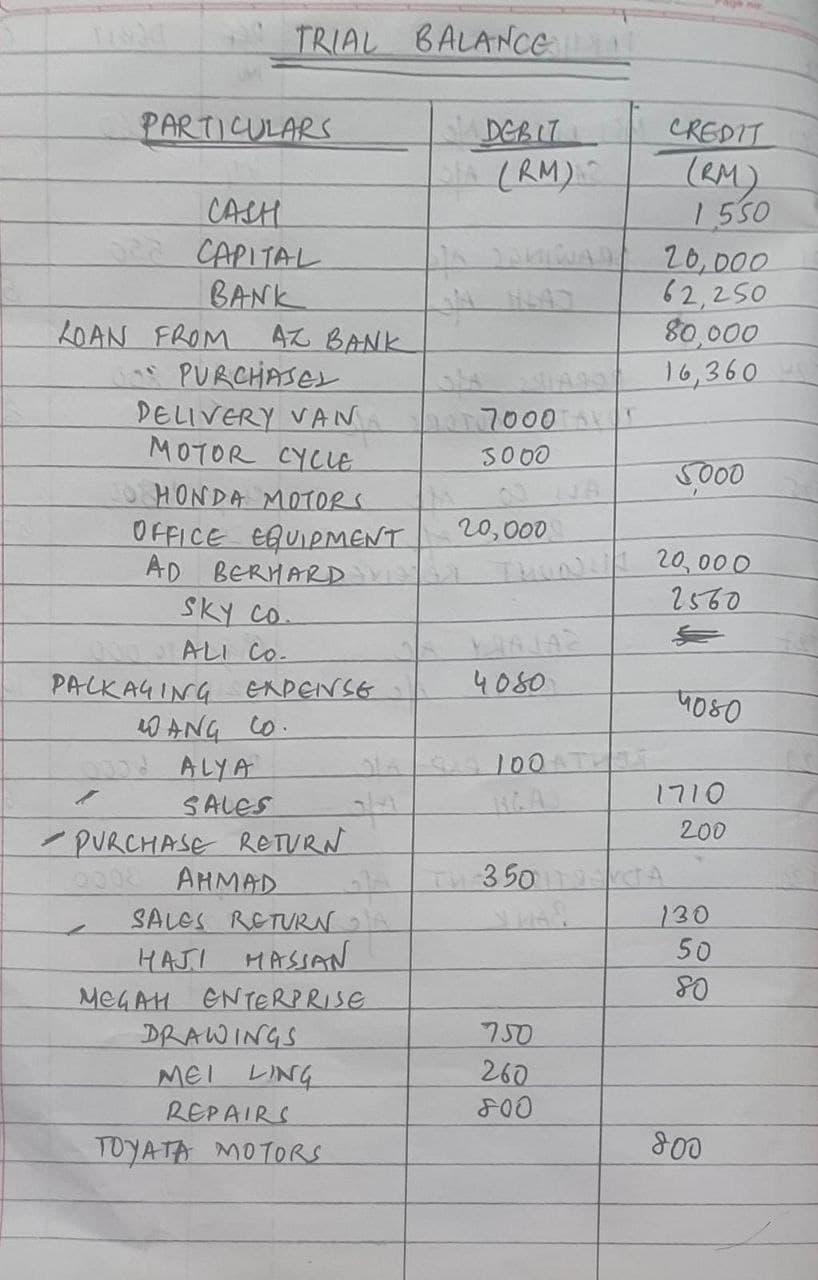 TRIAL BALANCE
PARTICULARS DEBIT CREDIT
(RM) (RM)
CASH 1,550
CAPITAL 20,000
BANK 62,250
LOAN FROM AZ BANK 80,000
PURCHASES 16,360
DELIVERY VAN 7000
MOTOR CYCLE 5000
HONDA MOTORS 5,000
OFFICE EQUIPMENT 20,000
AD BERHARD 20,000
SKY CO. 2560
ALI CO.
PACKAGING EXPENSE 4080
WANG CO. 4080
ALYA 100
SALES 1710
PURCHASE RETURN 200
AHMAD 350
SALES RETURN 130
HAJI HASSAN 50
MEGAH ENTERPRISE 80
DRAWINGS 750
MEI LING 260
REPAIRS 800
TOYATA MOTORS 800